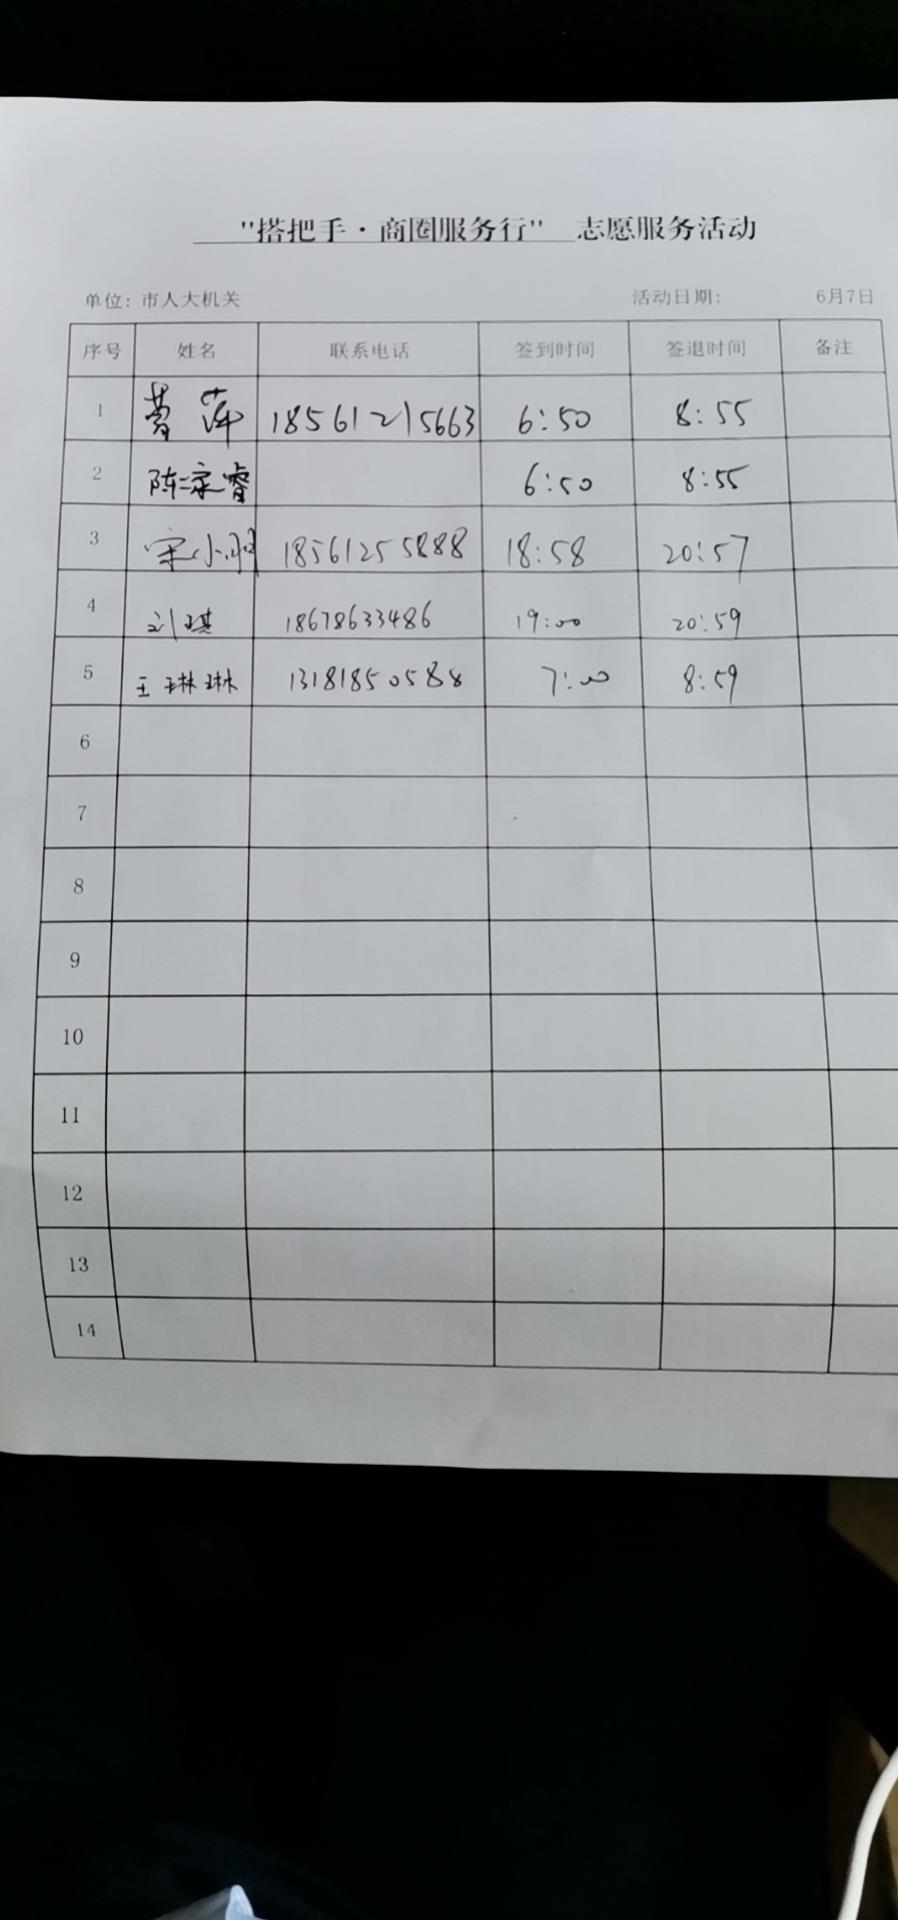 "搭把手·商圈服务行" 志愿服务活动
单位：市人大机关 活动日期： 6月7日
序号 姓名 联系电话 签到时间 签退时间 备注
1 萍 18561215663 6:50 8:55
2 陈宗睿 6:50 8:55
3 宋小 18561255888 18:58 20:57
4 刘琪 18678633486 19:00 20:59
5 王琳琳 13181850588 7:00 8:59
6
7
8
9
10
11
12
13
14